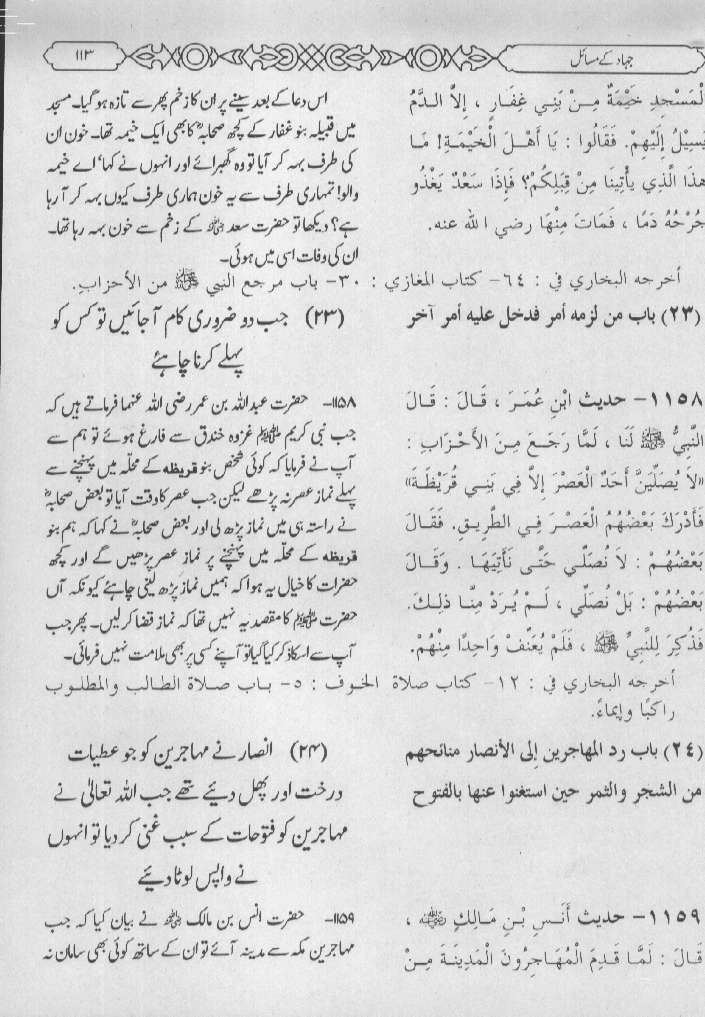 جہاد کے مسائل
۱۱۳
لْمَسْجِدِ خَيْمَةٌ مِنْ بَنِي غِفَارٍ ، إِلاَّ الدَّمُ
يَسِيْلُ إِلَيْهِمْ. فَقَالُوا : يَا أَهْلَ الْخَيْمَةِ! مَا
هذَا الَّذِي يَأْتِينَا مِنْ قِبَلِكُمْ؟ فَإِذَا سَعْدٌ يَغْذُو
جُرْحُهُ دَمًا ، فَمَاتَ مِنْهَا رضي الله عنه.
اس دعا کے بعد سینے پر ان کا زخم پھر سے تازہ ہو گیا۔ مسجد
میں قبیلہ بنو غفار کے کچھ صحابہؓ کا بھی ایک خیمہ تھا۔ خون ان
کی طرف بہہ کر آیا تو وہ گھبرائے اور انہوں نے کہا' اے خیمہ
والو! تمہاری طرف سے یہ خون ہماری طرف کیوں بہہ کر آ رہا
ہے؟ دیکھا تو حضرت سعد ؓ کے زخم سے خون بہہ رہا تھا۔
ان کی وفات اسی میں ہوئی۔
أخرجه البخاري في : ٦٤- كتاب المغازي : ٣٠- باب مرجع النبي ﷺ من الأحزاب.
(٢٣) باب من لزمه أمر فدخل عليه أمر آخر
(۲۳) جب دو ضروری کام آ جائیں تو کس کو
پہلے کرنا چاہئے
١١٥٨- حديث ابْنِ عُمَرَ ، قَالَ : قَالَ
النَّبِيُّ ﷺ لَنَا ، لَمَّا رَجَعَ مِنَ الأَحْزَابِ :
«لاَ يُصَلِّيَنَّ أَحَدٌ الْعَصْرَ إِلاَّ فِي بَنِي قُرَيْظَةَ»
فَأَدْرَكَ بَعْضُهُمُ الْعَصْرَ فِي الطَّرِيقِ. فَقَالَ
بَعْضُهُمْ : لاَ نُصَلِّي حَتَّى نَأْتِيَهَا . وَقَالَ
بَعْضُهُمْ : بَلْ نُصَلِّي ، لَمْ يُرَدْ مِنَّا ذلِكَ.
فَذُكِرَ لِلنَّبِيِّ ﷺ ، فَلَمْ يُعَنِّفْ وَاحِدًا مِنْهُمْ.
۱۱۵۸- حضرت عبداللہ بن عمر رضی اللہ عنہما فرماتے ہیں کہ
جب نبی کریم ﷺ غزوہ خندق سے فارغ ہوئے تو ہم سے
آپ نے فرمایا کہ کوئی شخص بنو قریظہ کے محلہ میں پہنچنے سے
پہلے نماز عصر نہ پڑھے لیکن جب عصر کا وقت آیا تو بعض صحابہؓ
نے راستہ ہی میں نماز پڑھ لی اور بعض صحابہؓ نے کہا کہ ہم بنو
قریظہ کے محلہ میں پہنچنے پر نماز عصر پڑھیں گے اور کچھ
حضرات کا خیال یہ ہوا کہ ہمیں نماز پڑھ لینی چاہئے کیونکہ آں
حضرت ﷺ کا مقصد یہ نہیں تھا کہ نماز قضا کر لیں۔ پھر جب
آپ سے اسکا ذکر کیا گیا تو آپنے کسی پر بھی ملامت نہیں فرمائی۔
أخرجه البخاري في : ١٢- كتاب صلاة الخوف : ٥- باب صلاة الطالب والمطلوب
راكبًا وإيماءً.
(٢٤) باب رد المهاجرين إلى الأنصار منائحهم
من الشجر والثمر حين استغنوا عنها بالفتوح
(۲۴) انصار نے مہاجرین کو جو عطیات
درخت اور پھل دیئے تھے جب اللہ تعالیٰ نے
مہاجرین کو فتوحات کے سبب غنی کر دیا تو انہوں
نے واپس لوٹا دیئے
١١٥٩- حديث أَنَسِ بْنِ مَالِكٍ ؓ ،
قَالَ : لَمَّا قَدِمَ الْمُهَاجِرُونَ الْمَدِينَةَ مِنْ
۱۱۵۹- حضرت انس بن مالک ؓ نے بیان کیا کہ جب
مہاجرین مکہ سے مدینہ آئے تو ان کے ساتھ کوئی بھی سامان نہ